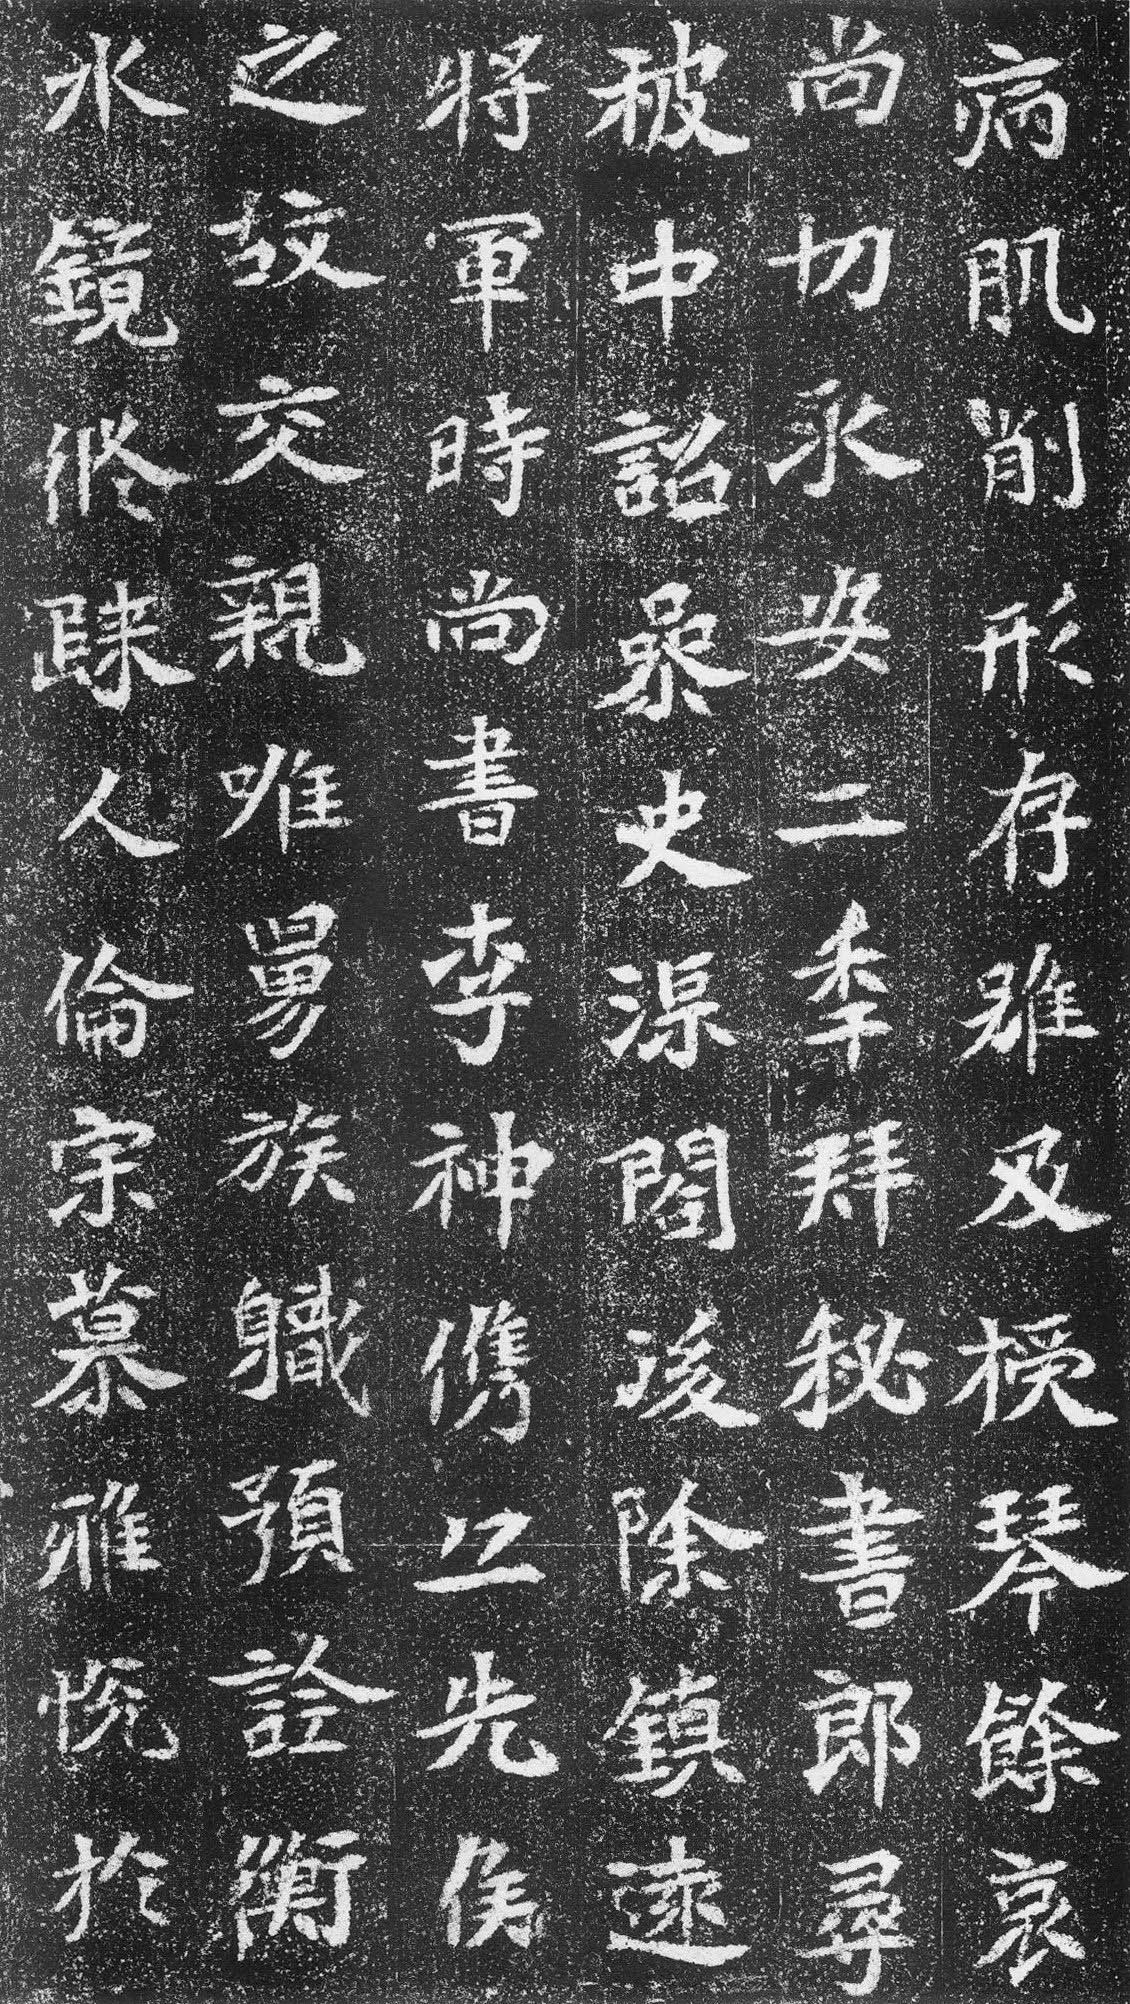 病肌削形存雖及榜琴餘哀
尚切永安二季拜秘書郎尋
被中詔參史渠閣後除鎮遠
將軍時尚書李神儁以先侯
之故交親唯舅族職預詮衡
水鏡修踈人倫宗慕雅悦於